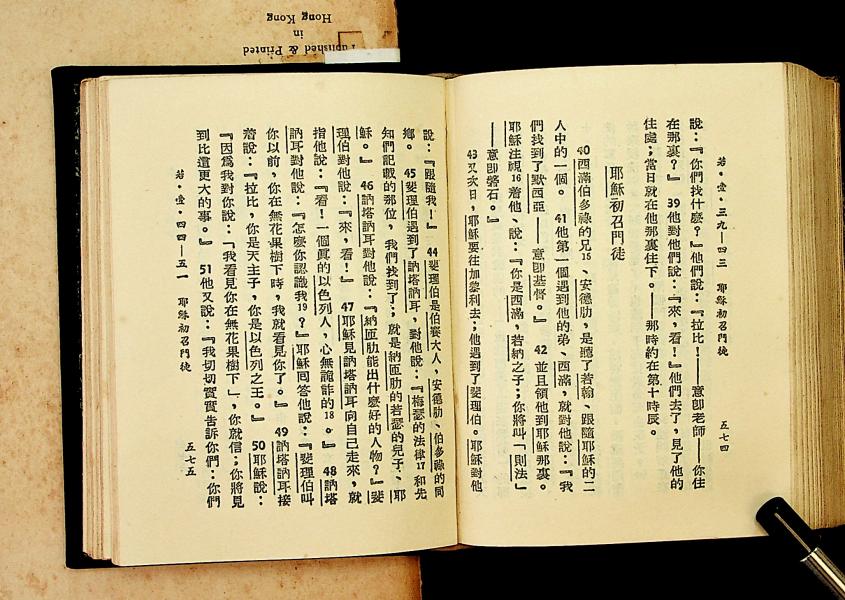 Published & Printed
in
Hong Kong
若·壹·三九—四三　耶穌初召門徒　五七四
說：『你們找什麼？』他們說：『拉比！——意即老師——你住
在那裏？』　39他對他們說：『來，看！』他們去了，見了他的
住處；當日就在他那裏住下。——那時約在第十時辰。
耶穌初召門徒
40西滿伯多祿的兄15、安德肋，是聽了若翰、跟隨耶穌的二
人中的一個。　41他第一個遇到他的弟、西滿，就對他說：『我
們找到了默西亞——意即基督。』　42並且領他到耶穌那裏。
耶穌注視16着他、說：『你是西滿，若納之子；你將叫「刻法」
——意即磐石。』
43又次日，耶穌要往加黎利去；他遇到了斐理伯。耶穌對他
說：『跟隨我！』　44斐理伯是伯賽大人，安德肋、伯多祿的同
鄉。　45斐理伯遇到了訥塔訥耳，對他說：『梅瑟的法律17和先
知們記載的那位，我們找到了；就是納匝肋的若瑟的兒子、耶
穌。』　46訥塔訥耳對他說：『納匝肋能出什麼好的人物？』斐
理伯對他說：『來，看！』　47耶穌見訥塔訥耳向自己走來，就
指他說：『看！一個眞的以色列人，心無詭詐的18。』　48訥塔
訥耳對他說：『怎麼你認識我19？』耶穌回答他說：『斐理伯叫
你以前，你在無花果樹下時，我就看見你了。』　49訥塔訥耳接
着說：『拉比，你是天主子，你是以色列之王。』　50耶穌說：
『因爲我對你說：「我看見你在無花果樹下」，你就信；你將見
到比這更大的事。』　51他又說：『我切切實實告訴你們：你們
若·壹·四四—五一　耶穌初召門徒　五七五